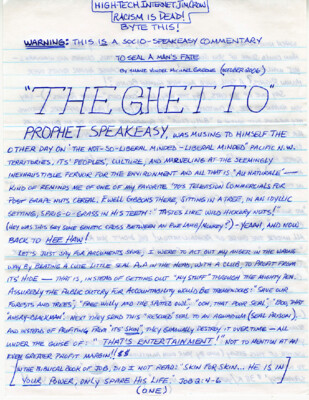 HIGH-TECH INTERNET JIM CROW
RACISM IS DEAD!
BYTE THIS!
WARNING: THIS IS A SOCIO-SPEAKEASY COMMENTARY
TO SEAL A MAN'S FATE
BY (OCTOBER 2006)
"THE GHETTO"
PROPHET SPEAKEASY, WAS MUSING TO HIMSELF THE
OTHER DAY ON "THE NOT-SO-LIBERAL MINDED - LIBERAL MINDED" PACIFIC N.W.
TERRITORIES, ITS' PEOPLES, CULTURE, AND MARVELING AT THE SEEMINGLY
INEXHAUSTIBLE FERVOR FOR THE ENVIRONMENT AND ALL THAT IS "AU NATURALE" —
KIND OF REMINDS ME OF ONE OF MY FAVORITE '70'S TELEVISION COMMERCIALS FOR
POST GRAPE NUTS CEREAL, EWELL GIBBONS THERE, SITTING IN A TREE, IN AN IDYLLIC
SETTING, SPRIG-O-GRASS IN HIS TEETH: "TASTES LIKE WILD HICKORY NUTS!"
(HEY WAS THIS GUY SOME GENETIC CROSS BETWEEN AN EWE LAMB/MONKEY?) - YEAH, AND NOW
BACK TO HEE HAW!
LET'S JUST SAY FOR ARGUMENTS SAKE, I WERE TO ACT OUT MY ANGER IN THE
BY BEATING A CUTE LITTLE SEAL PUP IN THE HEAD, WITH A CLUB, TO PROFIT FROM
IT'S HIDE — THAT IS, INSTEAD OF GETTING OUT "MY STUFF" THROUGH THE MIGHTY PEN.
ASSUREDLY THE PUBLIC OUTCRY FOR ACCOUNTABILITY WOULD BE TREMENDOUS: "SAVE OUR
FORESTS AND TREES", "FREE WILLY AND THE SPOTTED OWL", "OOH, THAT POOR SEAL", "OOO, THAT
ANGRY-BLACKMAN". NEXT THEY SEND THIS "RESCUED" SEAL TO AN AQUARIUM (SEAL PRISON),
AND INSTEAD OF PROFITING FROM ITS SKIN, THEY GRADUALLY DESTROY IT OVERTIME — ALL
UNDER THE GUISE OF: "THAT'S ENTERTAINMENT!" NOT TO MENTION AT AN
EVEN GREATER PROFIT MARGIN!! $$
IN THE BIBLICAL BOOK OF JOB, DID I NOT READ: "SKIN FOR SKIN... HE IS IN
YOUR POWER, ONLY SPARE HIS LIFE." JOB 2:4-6
(ONE)